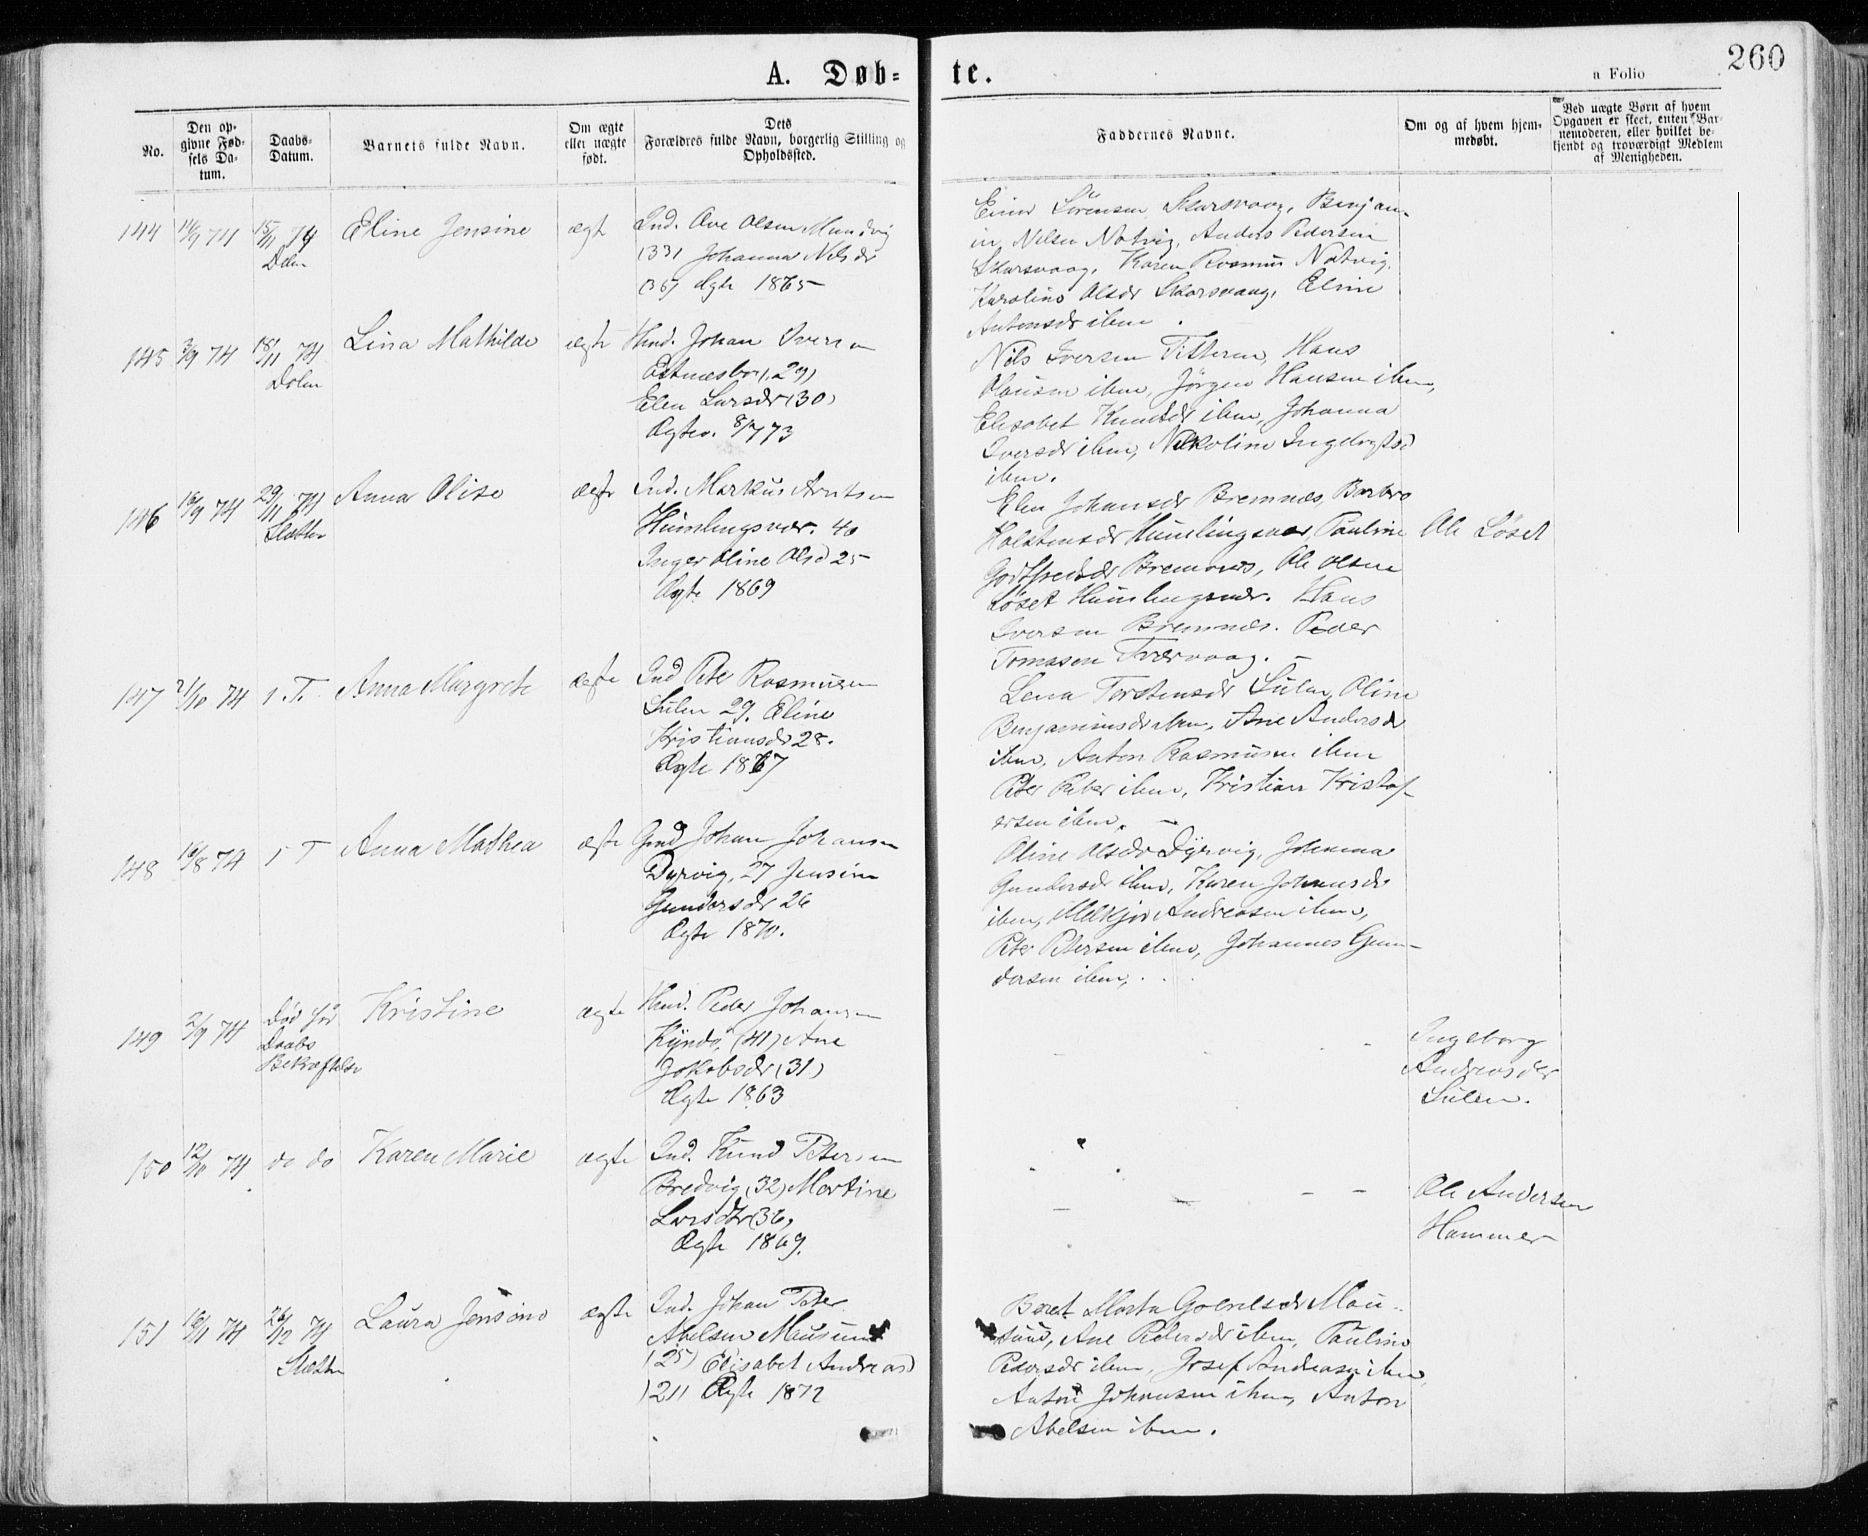 260
A. Døb-
te.
a Folio
No.
Den op-
givne Fød-
sels Da-
tum.
Daabs-
Datum.
Barnets fulde Navn.
Om ægte
eller uægte
født.
Dets
Forældres fulde Navn, borgerlig Stilling og
Opholdssted.
Faddernes Navne.
Om og af hvem hjem-
medøbt.
Ved uægte Børn af hvem
Opgaven er skeet, enten Bar-
nemoderen, eller hvilket be-
kjendt og troværdigt Medlem
af Menigheden.
144 14/9 74 15/11 74
Dolm
Eline Jensine
ægte
Ind. Ove Olsen
(33) Johanna Nilsdr
(36) Ægte 1865
Sørensen Skarsvaag, Benjam-
in Nilsen Notvig, Anders Pedersen
Skarsvaag, Karen Rasmus Notvig
Karoline Olsdr Skarsvaag, Eline
Antonsdr ibm.
145 3/9 74 15/11 74
Dolm
Lina Mathilde
ægte
Hmd. Johan Iversen
(29)
Elen Larsdr (30)
Ægtev. 8/7 73
Nils Iversen Titteren, Hans
Olausen ibm, Jørgen Hansen ibm,
Elisabet Knutsdr ibm, Johanna
Iversdr ibm, Nikoline
ibm.
146 16/9 74 29/11 74
Sletten
Anna Olise
ægte
Ind. Markus Arntsen
Humlingsvær. 40
Inger Oline Olsd 25
Ægte 1869
Elen Johansdr Bremnes, Barbro
Holstensdr Humlingsvær, Pauline
Godtfredsdr Bremnes, Ole Olsen
Løset Humlingsvær. Hans
Iversen Bremnes. Peder
Tomasen Tværvaag.
Ole Løset
147 21/10 74 1. T.
Anna Margrete
ægte
Ind Peter Rasmusen
Sulen 29. Eline
Kristiansdr 28.
Ægte 1867
Lena Torstensdr Sulen, Oline
Benjaminsdr ibm, Ane Andersdr
ibm, Anton Rasmusen ibm
Peter ibm, Kristian Kristof-
ersen ibm.
148 16/8 74 1 T
Anna Mathea
ægte
Gmd Johan Johansen
Dyrvig, 27 Jensine
Gundersdr 26
Ægte 1870.
Oline Olsdr Dyrvig, Johanna
Gundersdr ibm, Karen Johansdr
ibm, Melkjor Andreasen ibm,
Peter Petersen ibm, Johannes Gun-
dersen ibm.
149 2/9 74
Død før
Daabs
Bekræftelse
Kristine
ægte
Hmd. Peder Johansen
Kjyndø, (41) Ane
Jakobsdr (31)
Ægte 1863
Ingeborg
Andreasdr
Sulen.
150 12/10 74 do do
Karen Marie
ægte
Ind. Knud Petersen
Bredvig (32) Martine
Larsdtr (36)
Ægte 1869.
Ole Andersen
Hammer
151 16/11 74 26/12 74
Sletten
Laura Jensine
ægte
Ind. Johan Peter
Abelsen Mausund
(25) Elisabet Andreasd
(21) Ægte 1872
Beret Marta Mau-
sund, Ane Pedersdr ibm, Pauline
Pedersdr ibm, Josef Andreasen ibm,
Anton Johansen ibm, Anton
Abelsen ibm.